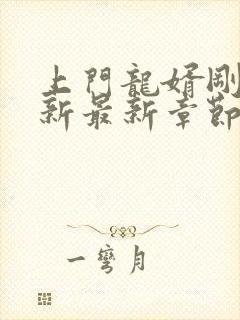 上門龍婿剛
新最新章節
一彎月